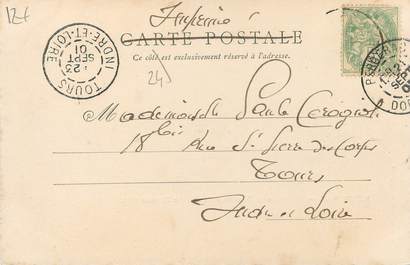 12€
Imprimé
CARTE POSTALE
Ce côté est exclusivement réservé à l'adresse.
TOURS INDRE-ET-LOIRE
23
SEPT
01
24
Mademoiselle Paule
18 bis Rue St Pierre des Corps
Tours
Indre et Loire